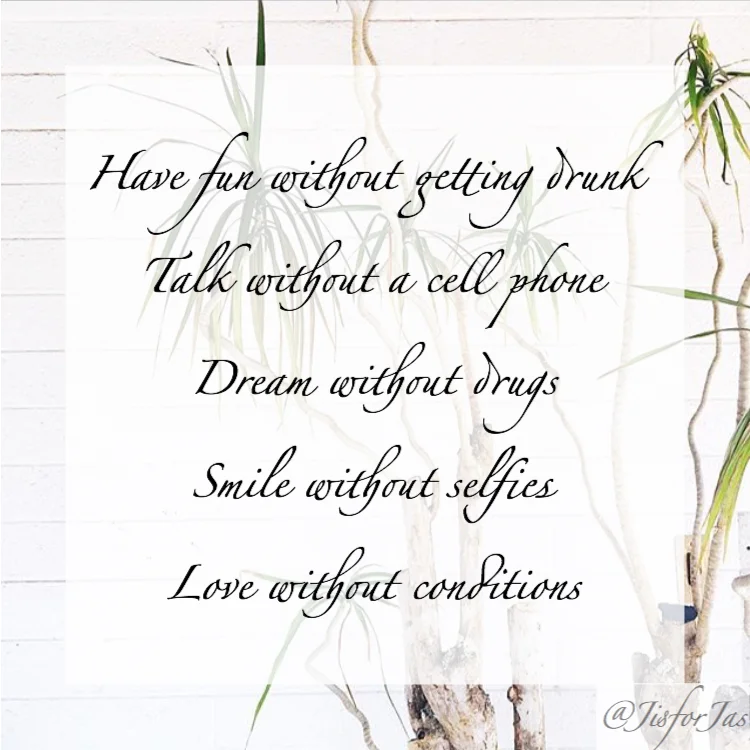 Have fun without getting drunk
Talk without a cell phone
Dream without drugs
Smile without selfies
Love without conditions
@JisforJas